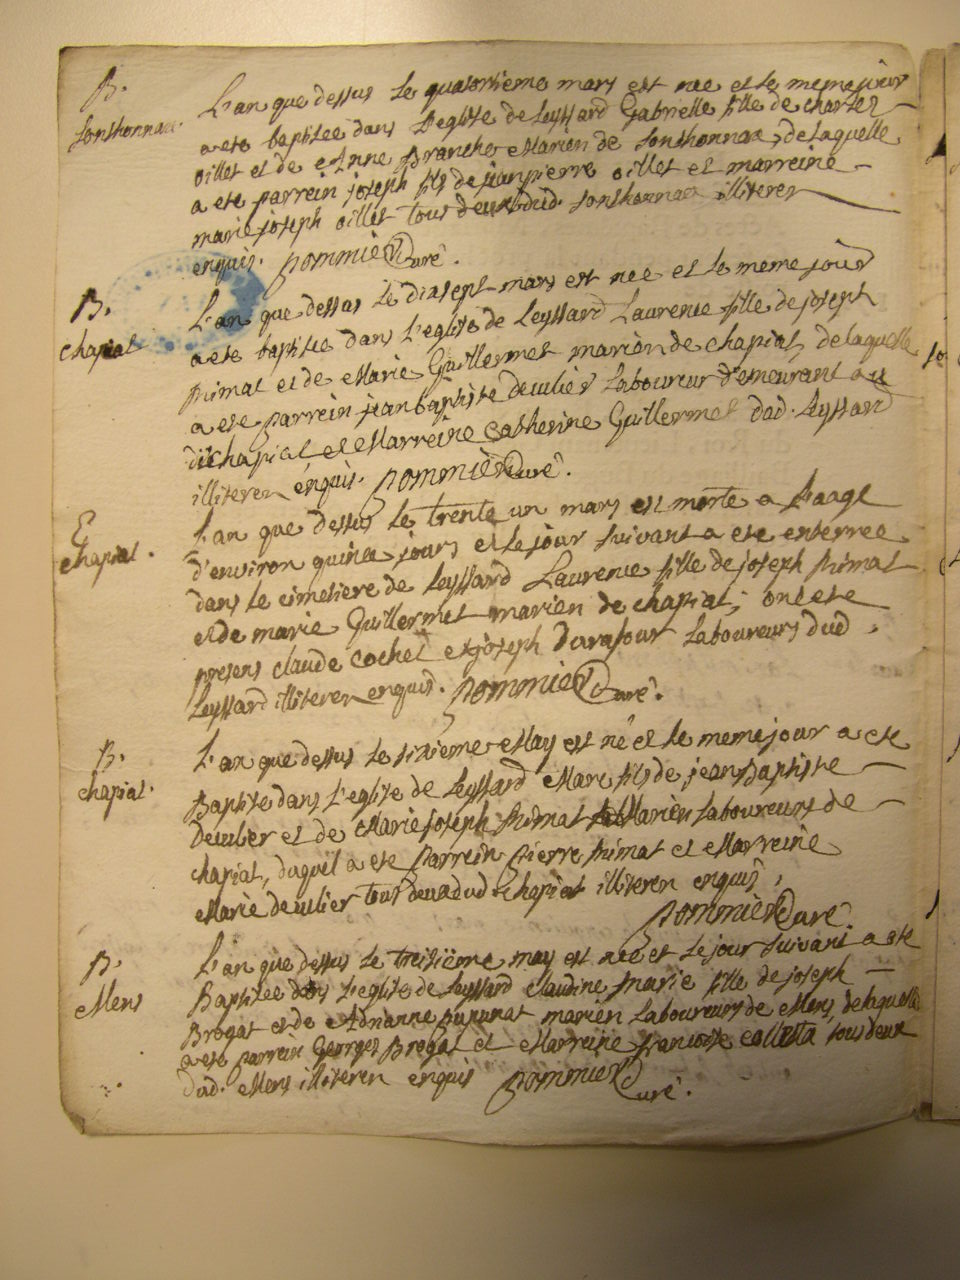 B.
Sonthonnax.
L'an que dessus le quatorzieme mars est née et le meme jour
a ete baptisée dans l'eglise de Leyssard Gabrielle fille de charles
oillet et de Anne Branche Mariés de Sonthonnax, de laquelle
a ete parrein joseph fils de jeanpierre oillet et marreine
marie joseph oillet tous deux dud. Sonthonnax illiteres
enquis. pommier Curé.
B.
Chapiat
L'an que dessus le dixsept mars est née et le meme jour
a ete baptisée dans l'eglise de Leyssard Laurence fille de joseph
primat et de Marie Guillermet mariés de chapiat, de laquelle
a ete parrein jean baptiste deculier Laboureur demeurant au
dit chapiat et Marreine Catherine Guillermet dud. Leyssard
illiteres enquis. pommier Curé.
E
Chapiat.
L'an que dessus le trente un mars est morte a l'aage
d'environ quinze jours et le jour suivant a ete enterrée
dans le cimetiere de Leyssard Laurence fille de joseph primat
et de marie Guillermet mariés de chapiat; ont ete
presens claude cochet et joseph Laboureurs dud.
Leyssard illiteres enquis. pommier Curé.
B.
chapiat.
L'an que dessus le sixieme May est né et le meme jour a ete
Baptisé dans l'eglise de Leyssard Marc fils de jean Baptiste
Deculier et de Marie joseph primat Mariés Laboureurs de
chapiat, duquel a ete parrein pierre primat et Marreine
Marie deculier tous deux dud. chapiat illiteres enquis,
pommier Curé.
B.
Mens
L'an que dessus le treizième may est née et le jour suivant a ete
Baptisée dans l'eglise de Leyssard Claudine marie fille de joseph
Brogat et de Adrianne mariés Laboureurs de Mens, de laquelle
a ete parrein Georges Brogat et Marreine francoise colletta tous deux
dud. Mens illiteres enquis pommier Curé.